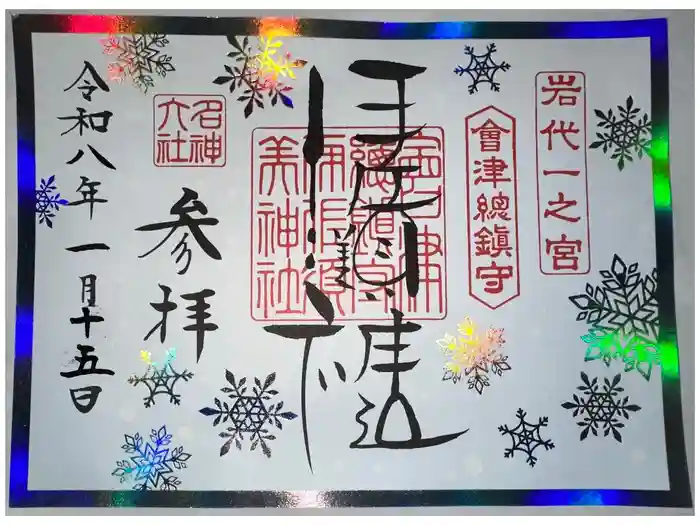 岩代一之宮
會津總鎮守
會津
總鎮守
伊佐須
美神社
名神
大社
参拝
令和八年一月十五日